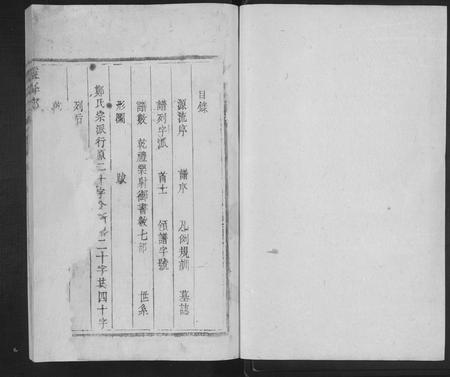 目錄
源流序 譜序 凡例規訓 墓誌
譜列字派 首士 領譜字號
譜數 乾禮樂射御書數七部 世系
形圖 跋
鄭氏宗派行原二十字 二十字共四十字
列后